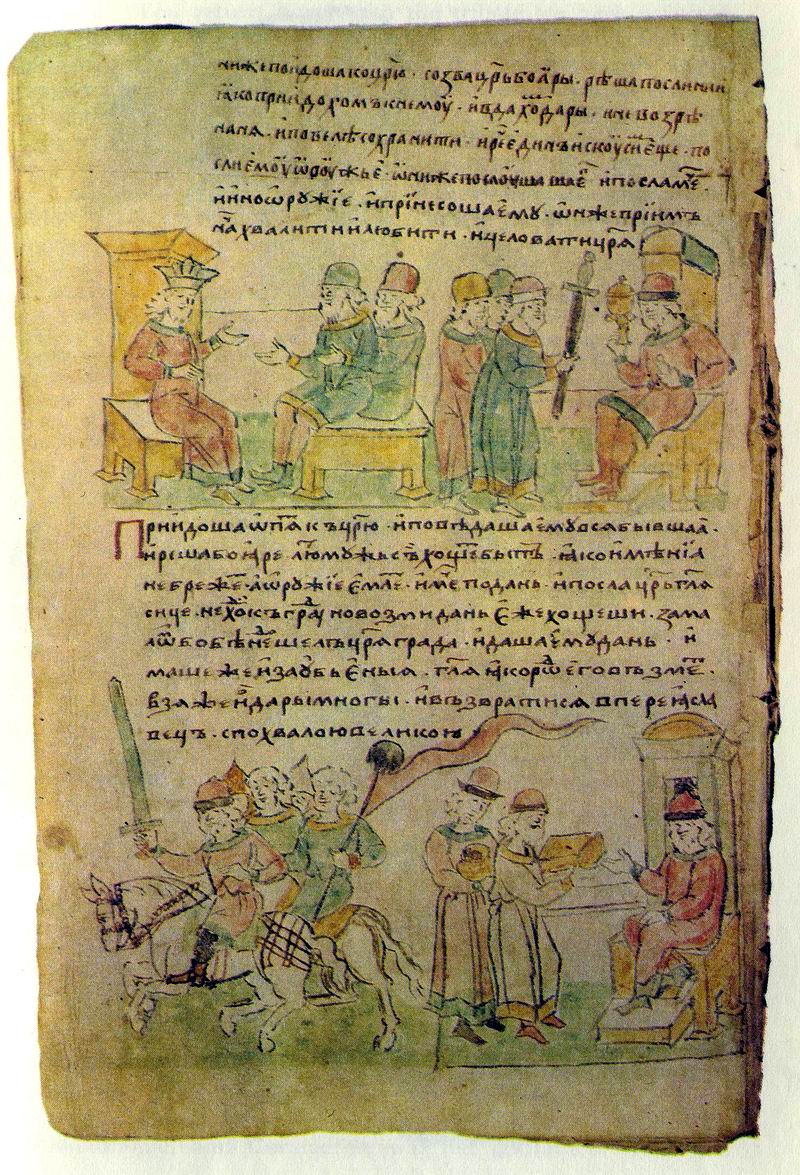 ниже поидоша ко црю · созва црь боляры · рѣша послании
яко приидохомъ к немоу · и вдахо дары · и не возрѣ
на ня · и повелѣ сохранити · и рече единъ искоуси еще · по
сли емоу ѿроужье · ѡни же послоушаша е и посламе
ино ѡружїе · и прїнесоша ему · ѡн же прїимъ
на хвалити и любити · и целовати цря
Приидоша ѡпя къ црю · и повѣдаша ему вся бывшаа ·
и рѣша бояре лю мужь съ хоще быть · яко имѣнїа
небреже · а ѡружїе емле · име по дань · и посла црь гля
сице · не хо къ гра но возми дань еже хощеши · зама
ло бо бѣ не шелъ цряграда · и даша ему дань · и
маше же и за убьеныя · гля яко ро его възме ·
взя же и дары многы · и възвратися в перенсла
вець · с похвалою великою